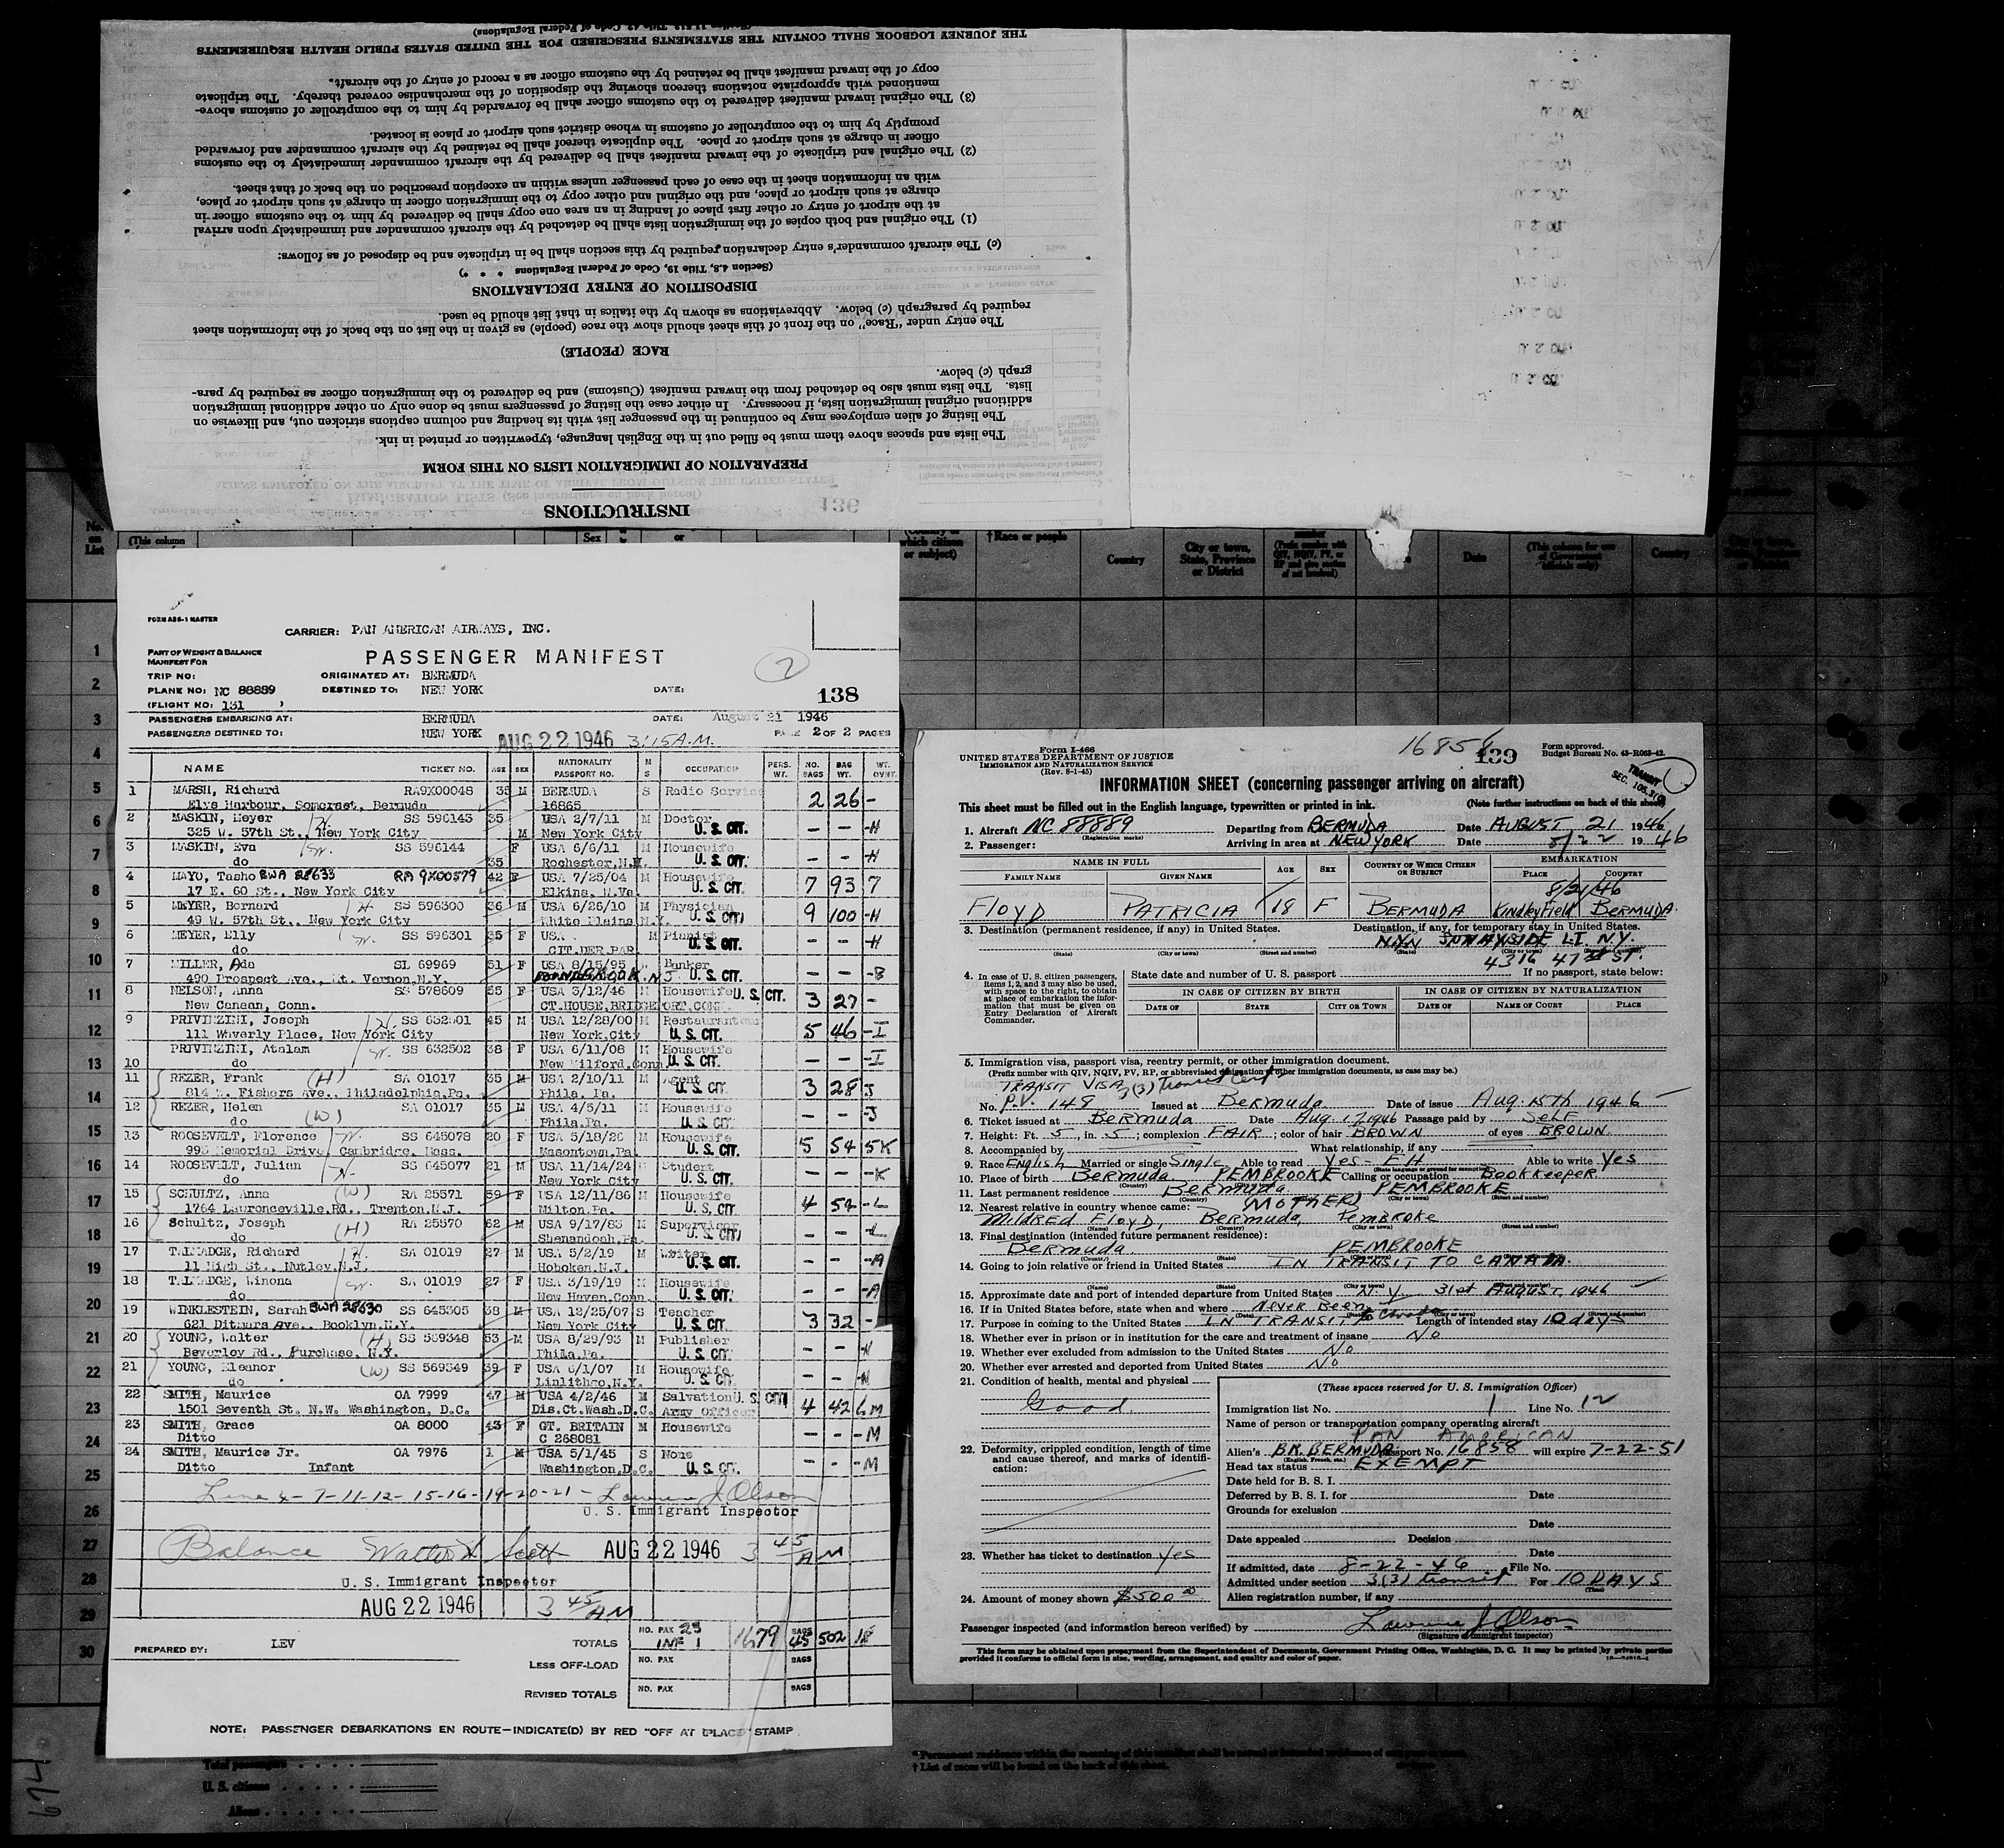 INSTRUCTIONS
PREPARATION OF IMMIGRATION LISTS ON THIS FORM
The lists and spaces above them must be filled out in the English language, typewritten or printed in ink.
The listing of alien employees may be continued in the passenger list with its heading and column captions stricken out, and likewise on
additional original immigration lists, if necessary. In either case the listing of passengers must be done only on other additional immigration
lists. The lists must also be detached from the inward manifest (Customs) and be delivered to the immigration officer as required by para-
graph (c) below.
RACE (PEOPLE)
The entry under "Race" on the front of this sheet should show the race (people) as given in the list on the back of the information sheet
required by paragraph (c) below. Abbreviations as shown by the italics in that list should be used.
DISPOSITION OF ENTRY DECLARATIONS
(Section 4.8, Title 19, Code of Federal Regulations * * *)
(c) The aircraft commander's entry declaration required by this section shall be in triplicate and be disposed of as follows:
(1) The original and both copies of the immigration lists shall be detached by the aircraft commander and immediately upon arrival
at the airport of entry or other first place of landing in an area one copy shall be delivered by him to the customs officer in
charge at such airport or place, and the original and other copy to the immigration officer in charge at such airport or place,
with an information sheet in the case of each passenger unless within an exception prescribed on the back of that sheet.
(2) The original and triplicate of the inward manifest shall be delivered by the aircraft commander immediately to the customs
officer in charge at such airport or place. The duplicate thereof shall be retained by the aircraft commander and forwarded
promptly by him to the comptroller of customs in whose district such airport or place is located.
(3) The original inward manifest delivered to the customs officer shall be forwarded by him to the comptroller of customs above-
mentioned with appropriate notations thereon showing the disposition of the merchandise covered thereby. The triplicate
copy of the inward manifest shall be retained by the customs officer as a record of entry of the aircraft.
THE JOURNEY LOGBOOK SHALL CONTAIN THE STATEMENTS PRESCRIBED FOR THE UNITED STATES PUBLIC HEALTH REQUIREMENTS
No. on List
(This column
Sex
or
which citizen or subject)
† Race or people
Country
City or town, State, Province or District
Date
Country
FORM ASS-1 MASTER
CARRIER: PAN AMERICAN AIRWAYS, INC.
PART OF WEIGHT & BALANCE
MANIFEST FOR
PASSENGER MANIFEST
2
TRIP NO: ORIGINATED AT: BERMUDA
PLANE NO: NC 88889 DESTINED TO: NEW YORK DATE: 138
(FLIGHT NO: 131 )
PASSENGERS EMBARKING AT: BERMUDA DATE: August 21 1946
PASSENGERS DESTINED TO: NEW YORK AUG 22 1946 3:15 A.M. PAGE 2 OF 2 PAGES
NAME TICKET NO. AGE SEX NATIONALITY PASSPORT NO. M S OCCUPATION PERS. WT. NO. BAGS BAG WT. WT. OVNT.
1 MARSH, Richard RA9X00048 35 M BERMUDA S Radio Service 2 26 -
Elys Harbour, Somerset, Bermuda 16865
2 MASKIN, Meyer H. SS 596143 35 USA 2/7/11 M Doctor
325 W. 57th St., New York City M New York City U.S. CIT. - - -H
3 MASKIN, Eva W. SS 596144 F USA 6/6/11 M Housewife
do 35 Rochester, N.Y. U.S. CIT. - - -H
4 MAYO, Tasho BWA 28633 RA 9X00579 42 F USA 7/25/04 M Housewife
17 E. 60 St., New York City Elkins, W.Va. U.S. CIT. 7 93 7
5 MEYER, Bernard H SS 596300 36 M USA 6/26/10 M Physician
49 W. 57th St., New York City White Plains N.Y. U.S. CIT. 9 100 -H
6 MEYER, Elly W. SS 596301 35 F USA M Pianist
do CIT.DER.PAR. U.S. CIT. - - -H
7 MILLER, Ada SL 69969 51 F USA 8/15/95 W Banker
490 Prospect Ave., Mt. Vernon, N.Y. BOUNDBROOK. NJ U.S. CIT. - - -B
8 NELSON, Anna SS 578609 55 F USA 3/12/46 M Housewife U.S. CIT.
New Canean, Conn. CT.HOUSE, BRIDGEPORT,CONN 3 27 -
9 PRIVINZINI, Joseph H. SS 632501 45 M USA 12/28/00 M Restauranteur
111 Waverly Place, New York City New York,City U.S. CIT. 5 46 -I
PRIVINZINI, Atalam W. SS 632502 38 F USA 6/11/08 M Housewife
10 do New Milford,Conn U.S. CIT. - - -I
11 REZER, Frank (H) SA 01017 35 M USA 2/10/11 M Agent
814 W. Fishers Ave., Philadelphia,Pa. Phila. Pa. U.S. CIT 3 28 J
12 REZER, Helen (W) SA 01017 35 M USA 4/5/11 M Housewife
do Phila.Pa. U.S. CIT. - - -J
13 ROOSEVELT, Florence W. SS 645078 20 F USA 5/18/26 M Housewife
993 Memorial Drive, Cambridge, Mass. Masontown,Pa. U.S. CIT. 5 54 5K
14 ROOSEVELT, Julian H. SS 645077 21 M USA 11/14/24 Student
do New York City U.S. CIT. - - -K
15 SCHULTZ, Anna (W) RA 25571 59 F USA 12/11/86 M Housewife
1764 Lawrenceville Rd., Trenton,N.J. Milton,Pa. U.S. CIT. 4 54 -L
16 Schultz, Joseph (H) RA 25570 62 M USA 9/17/83 M Supervisor
do Shenandoah,Pa. U.S. CIT - - -L
17 TALMADGE, Richard H. SA 01019 27 M USA 5/2/19 M Writer
11 High St., Nutley, N.J. Hoboken,N.J. U.S. CIT. - - -A
18 TALMADGE, Winona W. SA 01019 27 F USA 3/19/19 M Housewife
do New Haven,Conn U.S. CIT. - - -A
19 WINKLESTEIN, Sarah BWA 28630 SS 645305 38 M USA 12/25/07 S Teacher
621 Ditmars Ave., Booklyn,N.Y. New York City U.S. CIT. 3 32 -
20 YOUNG, Walter (H) SS 569348 53 M USA 8/29/93 M Publisher
Beverley Rd., Purchase, N.Y. Phila.Pa. U.S. CIT. - - -N
21 YOUNG, Eleanor (W) SS 569349 39 F USA 6/1/07 M Housewife
do Linlithgo,N.Y. U.S. CIT. - - -N
22 SMITH, Maurice OA 7999 47 M USA 4/2/46 M Salvation U.S. CIT
1501 Seventh St. N.W. Washington, D.C. Dis.Ct.Wash.D.C. Army Officer 4 42 6M
23 SMITH, Grace OA 8000 43 F GT. BRITAIN M Housewife
Ditto C 268081 - - -M
24 SMITH, Maurice Jr. OA 7976 1 M USA 5/1/45 S None
Ditto Infant Washington,D.C. U.S. CIT. - - -M
Line 4-7-11-12-15-16-19-20-21- Lawrence J Olson
U.S. Immigrant Inspector
Balance Walter H Scott AUG 22 1946 3 45 AM
U.S. Immigrant Inspector
AUG 22 1946 3 45 AM
PREPARED BY: LEV TOTALS NO. PAX 23 INF 1 1679 BAGS 45 502 18
LESS OFF-LOAD NO. PAX BAGS
REVISED TOTALS NO. PAX BAGS
NOTE: PASSENGER DEBARKATIONS EN ROUTE—INDICATE(D) BY RED "OFF AT (PLACE)" STAMP
Total passengers
U. S. citizens
Aliens
Form I-466
UNITED STATES DEPARTMENT OF JUSTICE
IMMIGRATION AND NATURALIZATION SERVICE
(Rev. 8-1-45)
139
Form approved.
Budget Bureau No. 43-R063-42.
TRANSIT
INFORMATION SHEET (concerning passenger arriving on aircraft)
This sheet must be filled out in the English language, typewritten or printed in ink. (Note further instructions on back of this sheet)
1. Aircraft NC 88889 (Registration marks) Departing from BERMUDA Date AUGUST 21 1946
2. Passenger: Arriving in area at NEW YORK Date 8/22 1946
NAME IN FULL AGE SEX COUNTRY OF WHICH CITIZEN OR SUBJECT EMBARKATION
FAMILY NAME GIVEN NAME PLACE COUNTRY
8/21/46
FLOYD PATRICIA 18 F BERMUDA Kindley Field BERMUDA
3. Destination (permanent residence, if any) in United States. Destination, if any, for temporary stay in United States.
SUNNYSIDE L.I. N.Y.
(State) (City or town) (Street and number) (State) (City or town) (Street and number)
4316 47th ST.
4. In case of U. S. citizen passengers, items 1, 2, and 3 may also be used, with space to the right, to obtain at place of embarkation the information that must be given on Entry Declaration of Aircraft Commander.
State date and number of U. S. passport If no passport, state below:
IN CASE OF CITIZEN BY BIRTH IN CASE OF CITIZEN BY NATURALIZATION
DATE OF STATE CITY OR TOWN DATE OF NAME OF COURT PLACE
5. Immigration visa, passport visa, reentry permit, or other immigration document.
(Prefix number with QIV, NQIV, PV, RP, or abbreviated designation of other immigration documents, as case may be.)
TRANSIT VISA, 3(3) transit cert
No. P.V. 148 Issued at Bermuda Date of issue Aug. 15th 1946
6. Ticket issued at Bermuda Date Aug 17 1946 Passage paid by SELF
7. Height: Ft. 5, in. 5; complexion FAIR; color of hair BROWN of eyes BROWN
8. Accompanied by What relationship, if any
9. Race English Married or single Single Able to read Yes - EH Able to write Yes
10. Place of birth Bermuda PEMBROOKE Calling or occupation BOOKKEEPER
11. Last permanent residence Bermuda PEMBROOKE
12. Nearest relative in country whence came: (MOTHER)
MILDRED FLOYD, Bermuda, PEMBROKE
13. Final destination (intended future permanent residence):
Bermuda PEMBROOKE
14. Going to join relative or friend in United States IN TRANSIT TO CANADA.
15. Approximate date and port of intended departure from United States N.Y. 31st August, 1946
16. If in United States before, state when and where Never Been
17. Purpose in coming to the United States IN TRANSIT to Canada Length of intended stay 10 days
18. Whether ever in prison or in institution for the care and treatment of insane No
19. Whether ever excluded from admission to the United States No
20. Whether ever arrested and deported from United States No
21. Condition of health, mental and physical
Good
22. Deformity, crippled condition, length of time and cause thereof, and marks of identification:
23. Whether has ticket to destination Yes
24. Amount of money shown $500.00
(These spaces reserved for U. S. Immigration Officer)
Immigration list No. 1 Line No. 12
Name of person or transportation company operating aircraft
PAN AMERICAN
Alien's BR. BERMUDA passport No. 16858 will expire 7-22-51
Head tax status EXEMPT
Date held for B. S. I.
Deferred by B. S. I. for Date
Grounds for exclusion
Date
Date appealed Decision
Date
If admitted, date 8-22-46 File No.
Admitted under section 3(3) transit For 10 DAYS
Alien registration number, if any
Passenger inspected (and information hereon verified) by Lawrence J Olson
(Signature of immigrant inspector)
This form may be obtained upon prepayment from the Superintendent of Documents, Government Printing Office, Washington, D. C. It may be printed by private parties
provided it conforms to official form in size, wording, arrangement, and quality and color of paper.
† List of races will be found on the back of this sheet.